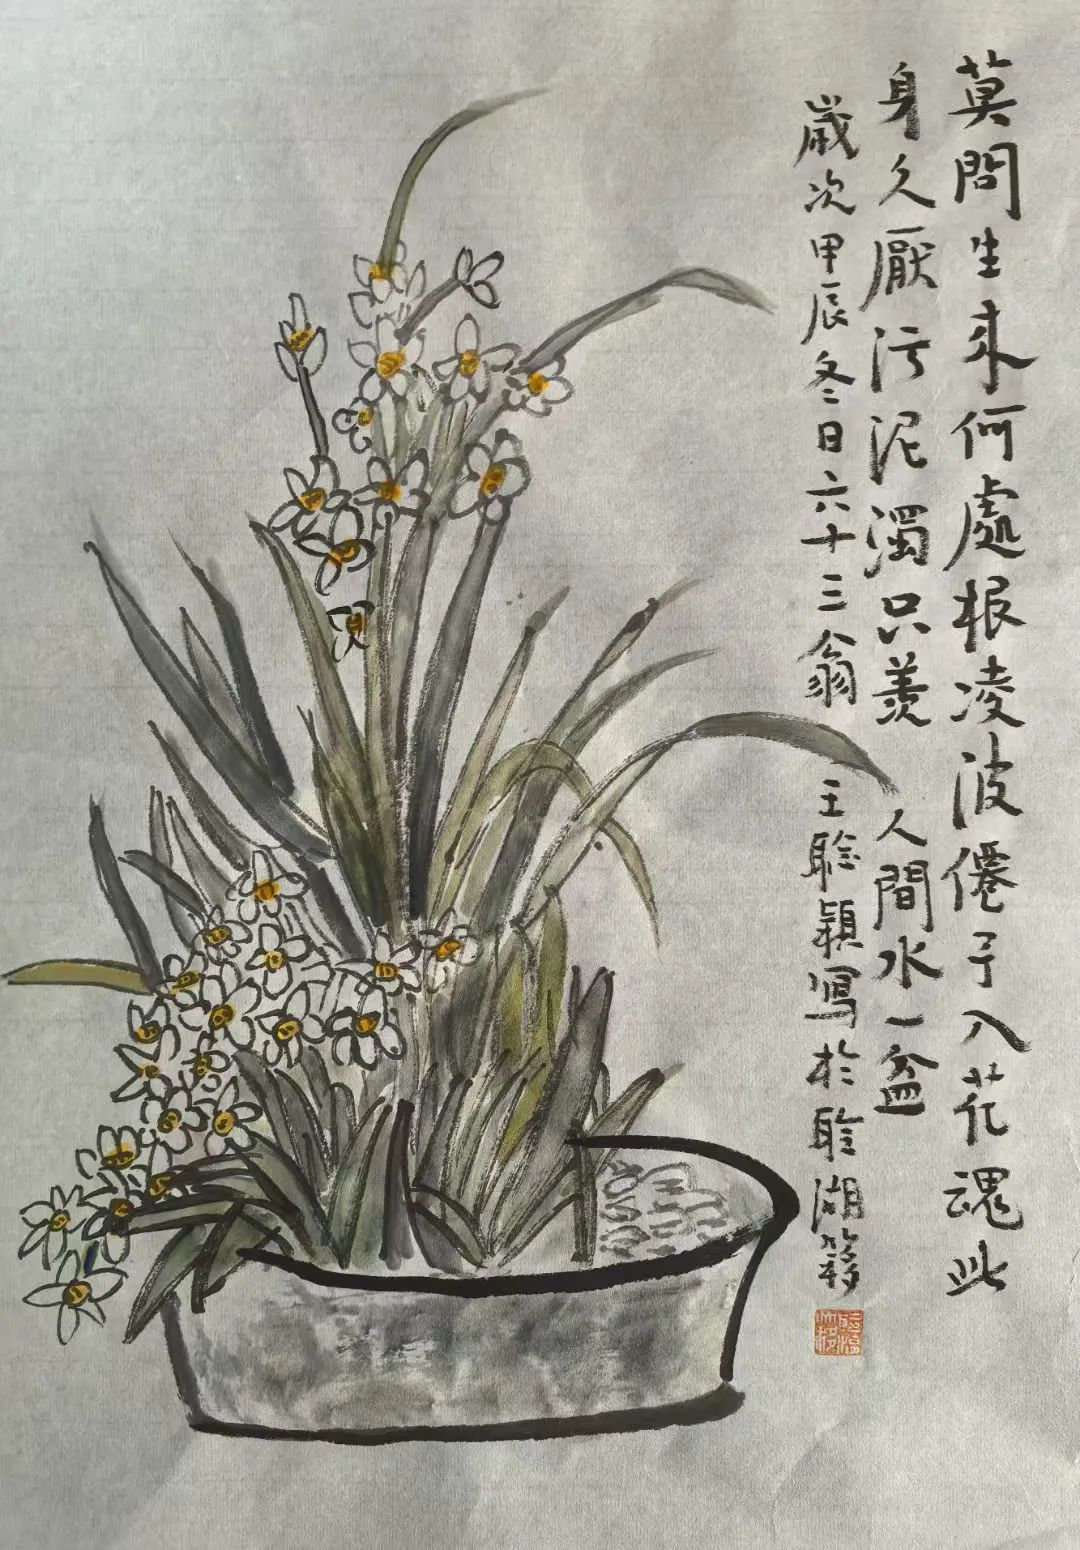 莫問生來何處根凌波僊子入花魂此
身久厭污泥濁只羨人間水一盆
歲次甲辰冬日六十三翁王聆穎寫於聆湖簃